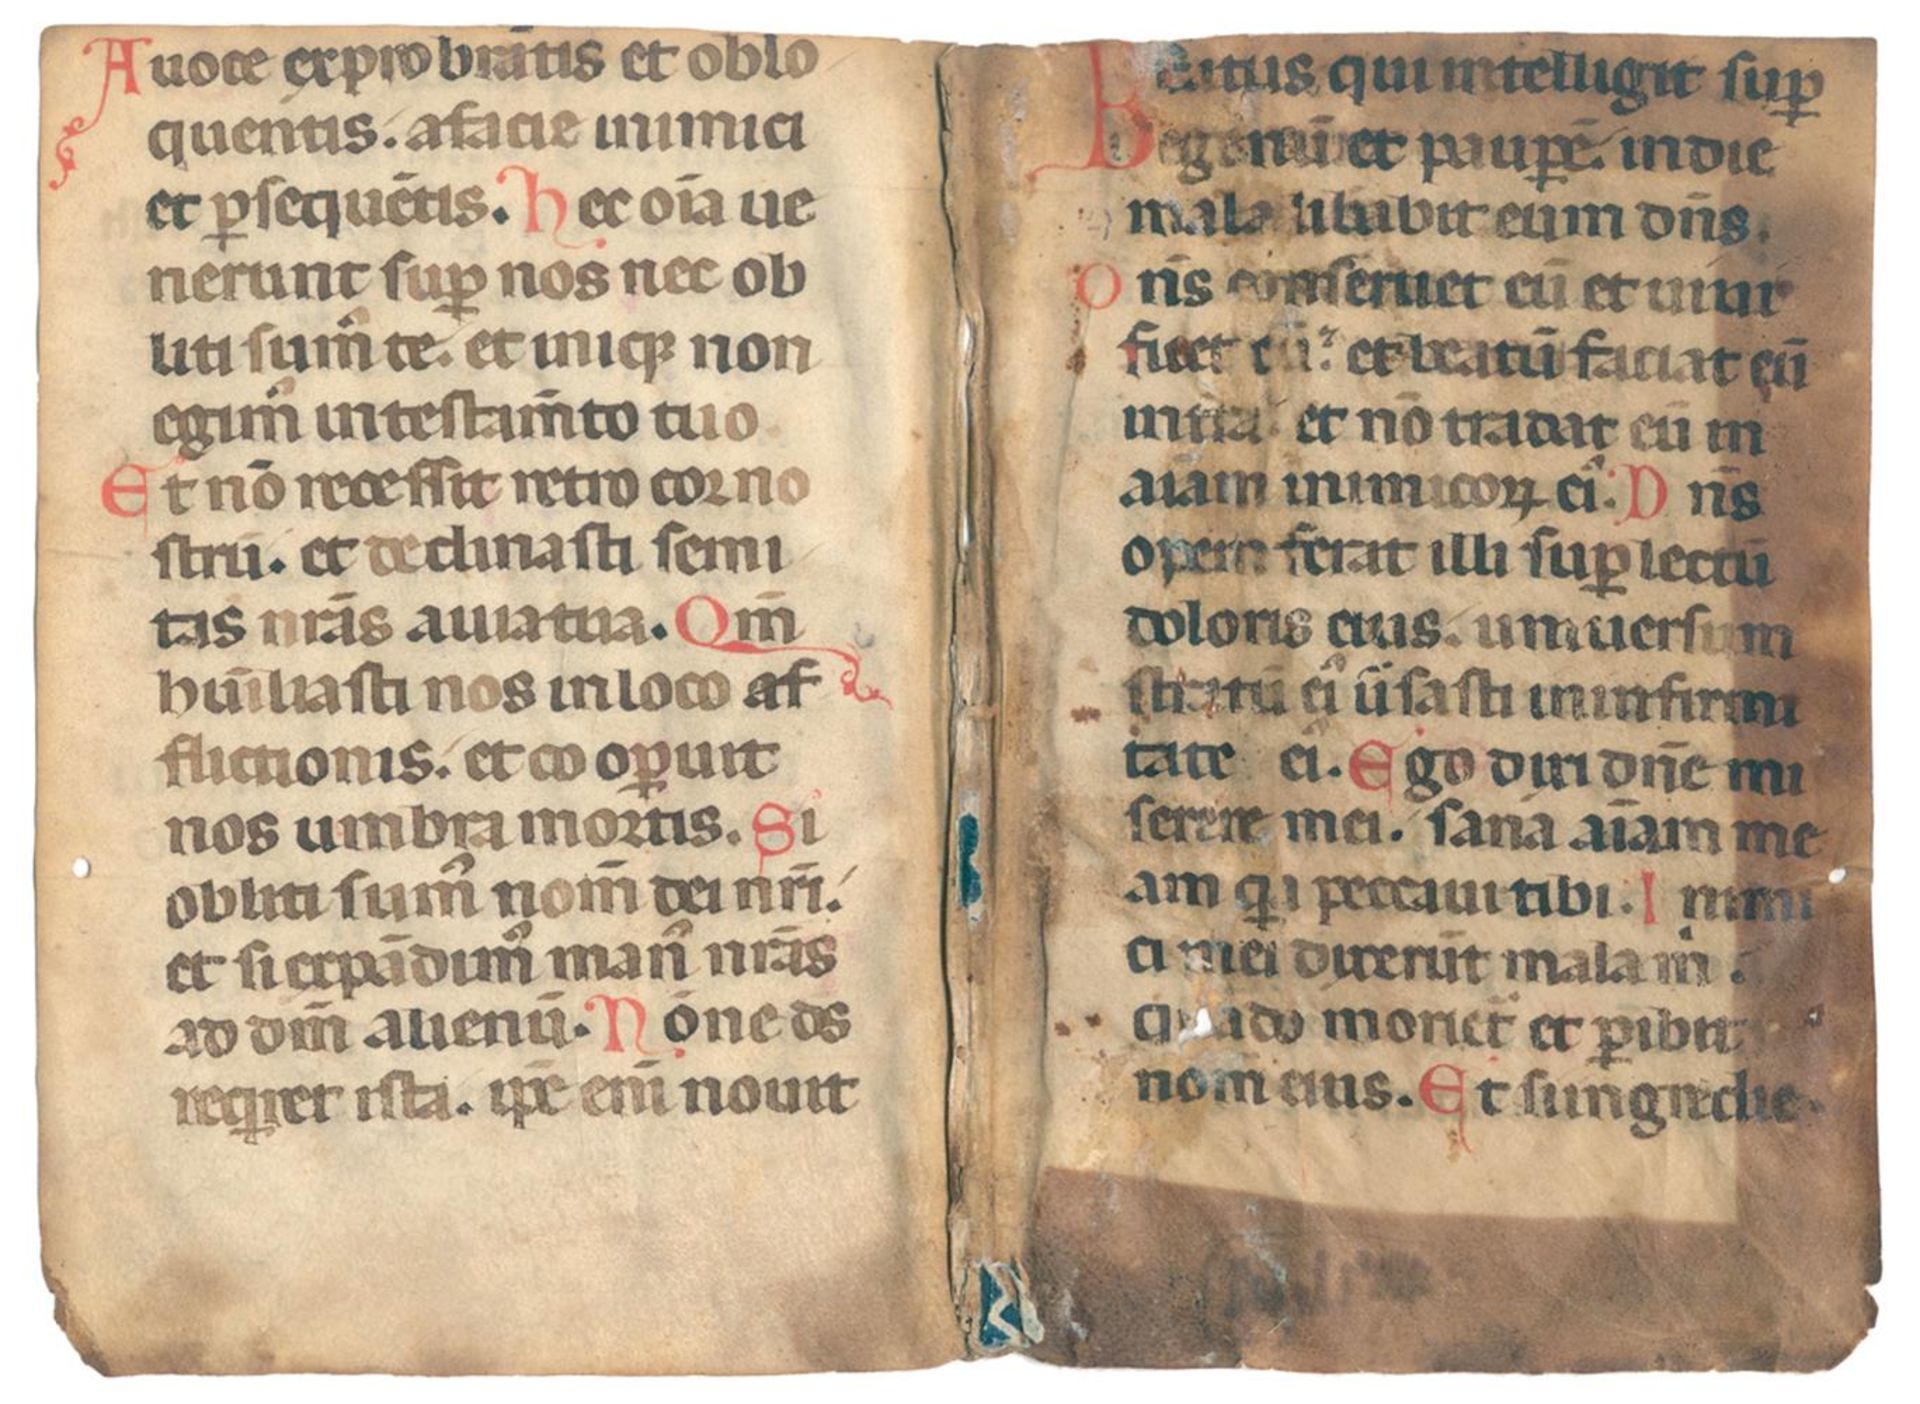 A uoce exprobrãtis et oblo
quentis. afacie inimici
et p̲sequẽtis. hec oĩa ue
nerunt sup̲ nos nec ob
liti sumꝰ te. et iniq̲ non
egimꝰ intestam̃to tuo
Et nõ recessit retro coꝛ no
strũ. et declinasti semi
tas nr̃as auia tua. Qm̃
hum̃iliasti nos inloco af
flictionis. et co op̲uit
nos umbra moꝛtis. Si
obliti sumꝰ nom̃ dei nr̃i.
et si expãdimꝰ manꝰ nr̃as
ad dm̃ alienũ. Nõne ds
requiret ista. ip̃e em̃ nouit
Beatus qui intelligit sup̲
egenũ et paup̲ẽ. in die
mala libabit eum dñs.
Dñs conseruet eũ et uiui
ficet eũ. et beatũ faciat eũ
in tra et nõ tradat eũ in
aĩam inimicoꝝ eiꝰ. Dñs
opem ferat illi sup̲ lectũ
doloris eius. uniuersum
stratũ eiꝰ ũsasti in infirmi
tate ei. Ego dixi dñe mi
serere mei. sana aĩam me
am qa peccaui tibi. Inimi
ci mei dixerũt mala m̃.
quãdo moriet̃ et p̲ibit
nom̃ eius. Et si ingredie